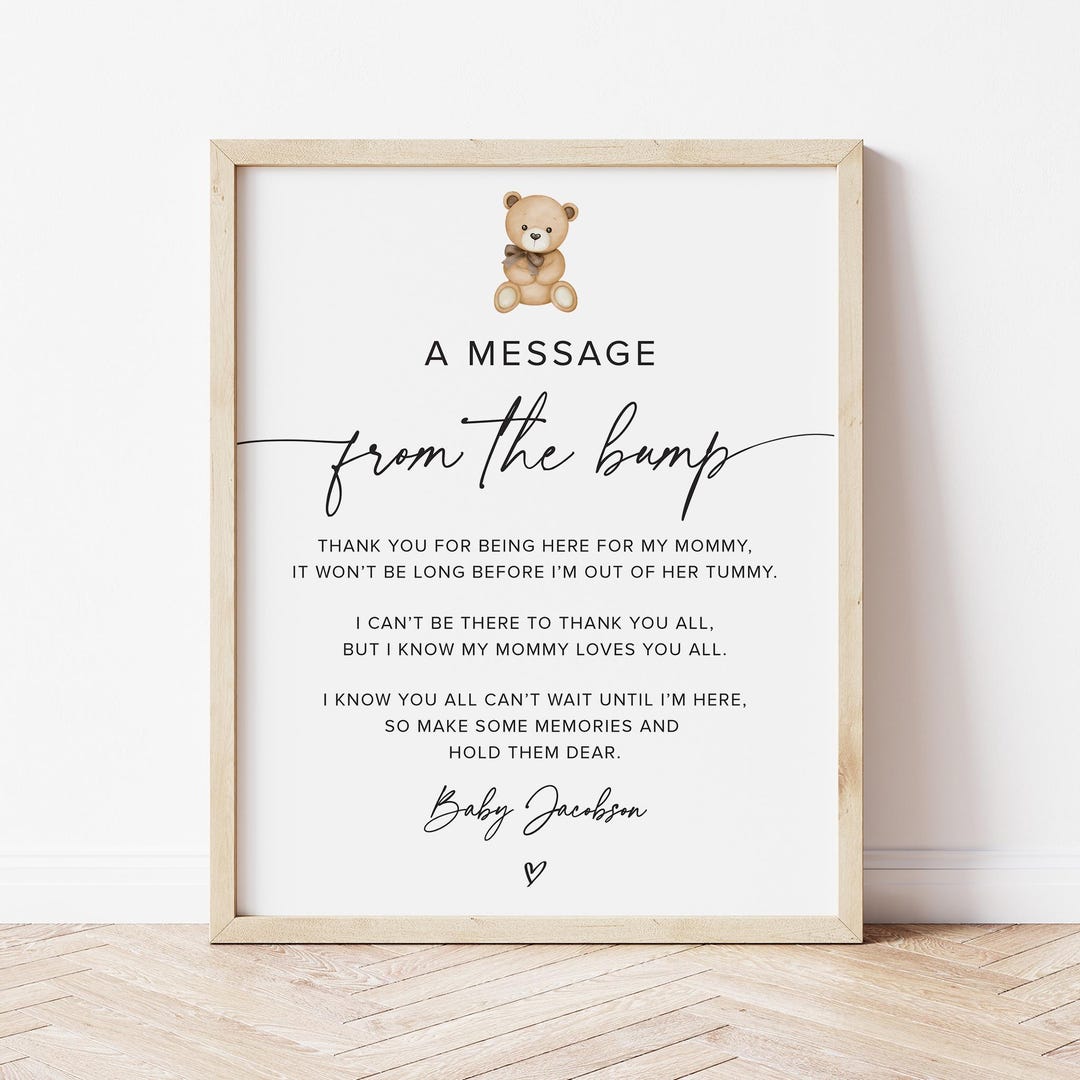 A MESSAGE
from the bump
THANK YOU FOR BEING HERE FOR MY MOMMY,
IT WON'T BE LONG BEFORE I'M OUT OF HER TUMMY.
I CAN'T BE THERE TO THANK YOU ALL,
BUT I KNOW MY MOMMY LOVES YOU ALL.
I KNOW YOU ALL CAN'T WAIT UNTIL I'M HERE,
SO MAKE SOME MEMORIES AND
HOLD THEM DEAR.
Baby Jacobson